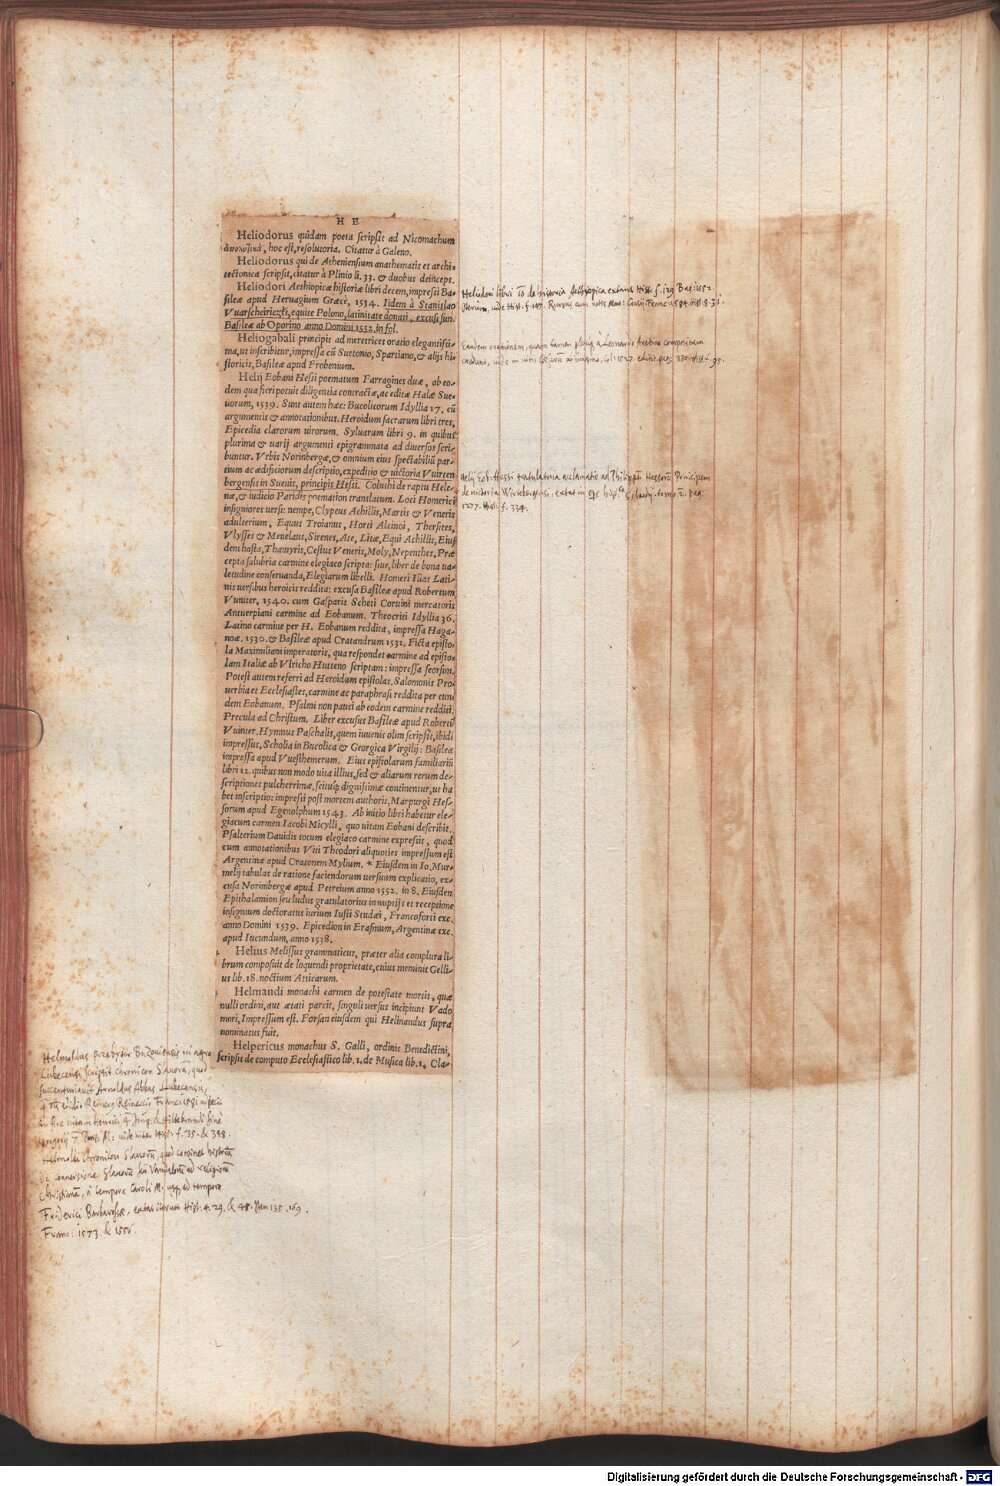 H E
Heliodorus quidam poeta scripsit ad Nicomachum
ἀπολυτικά, hoc est, resolutoria. Citatur à Galeno.
Heliodorus qui de Atheniensium anathematis et archi-
tectonica scripsit, citatur à Plinio li. 33. & duobus deinceps.
Heliodori Aethiopicæ historiæ libri decem, impressi Ba-
sileæ apud Heruagium Græcè, 1534. Iidem à Stanislao
Vuarscheuiczki, equite Polono, latinitate donati, excusi sunt
Basileæ ab Oporino anno Domini 1552. in fol.
Heliogabali principis ad meretrices oratio elegantissi-
ma, ut inscribitur, impressa cũ Suetonio, Spartiano, & alijs hi-
storicis, Basileæ apud Frobenium.
Helij Eobani Hessi poematum Farragines duæ, ab eo-
dem qua fieri potuit diligentia contractæ, ac editæ Halæ Sue-
uorum, 1539. Sunt autem hæc: Bucolicorum Idyllia 17. cũ
argumentis & annotationibus. Heroidum sacrarum libri tres,
Epicedia clarorum uirorum. Syluarum libri 9. in quibus
plurima & uarij argumenti epigrammata ad diuersos scri-
buntur. Vrbis Norimbergæ, & omnium eius spectabiliũ par-
tium ac ædificiorum descriptio, expeditio & uictoria Vuirten
bergensis in Sueuis, principis Hessi. Coluthi de raptu Hele-
næ, & iudicio Paridis poemation translatum. Loci Homerici
insigniores uersi: nempe, Clypeus Achillis, Martis & Veneris
adulterium, Equus Troianus, Horti Alcinoi, Thersites,
Vlysses & Menelaus, Sirenes, Ate, Litæ, Equi Achillis, Eius
dem hasta, Thamyris, Cestus Veneris, Moly, Nepenthes. Præ
cepta salubria carmine elegiaco scripta: siue, liber de bona ua-
letudine conseruanda, Elegiarum libelli. Homeri Ilias Lati-
nis uersibus heroicis reddita: excusa Basileæ apud Robertum
Vuinter, 1540. cum Gasparis Scheti Coruini mercatoris
Antuerpiani carmine ad Eobanum. Theocriti Idyllia 36.
Latino carmine per H. Eobanum reddita, impressa Haga-
noæ. 1530. & Basileæ apud Cratandrum 1531. Ficta episto-
la Maximiliani imperatoris, qua respondet carmine ad episto-
lam Italiæ ab Vlricho Hutteno scriptam: impressa seorsim.
Potest autem referri ad Heroidum epistolas. Salomonis Pro
uerbia et Ecclesiastes, carmine ac paraphrasi reddita per eun
dem Eobanum. Psalmi non pauci ab eodem carmine redditi.
Precula ad Christum. Liber excusus Basileæ apud Robertũ
Vuinter. Hymnus Paschalis, quem iuuenis olim scripsit, ibidẽ
impressus, Scholia in Bucolica & Georgica Virgilij: Basileæ
impressa apud Vuesthemerum. Eius epistolarum familiariũ
libri 12. quibus non modo uita illius, sed & aliarum rerum de-
scriptiones pulcherrimæ, scituq́; dignissimæ continentur, ut ha
bet inscriptio: impressi post mortem authoris, Marpurgi Hes-
sorum apud Egenolphum 1543. Ab initio libri habetur ele-
giacum carmen Iacobi Micylli, quo uitam Eobani describit.
Psalterium Dauidis totum elegiaco carmine expressit, quod
cum annotationibus Viti Theodori aliquoties impressum est
Argentinæ apud Cratonem Mylium. * Eiusdem in Io. Mur-
melij tabulas de ratione faciendorum uersuum explicatio, ex-
cusa Norimbergæ apud Petreium anno 1552. in 8. Eiusdem
Epithalamion seu ludus gratulatorius in nuptijs et receptione
insignium doctoratus iurium Iusti Studæi, Francoforti exc.
anno Domini 1539. Epicedion in Erasmum, Argentinæ exc.
apud Iucundum, anno 1538.
Helius Melissus grammaticus, præter alia complura li-
brum composuit de loquendi proprietate, cuius meminit Gelli-
us lib. 18. noctium Atticarum.
Helmandi monachi carmen de potestate mortis, quæ
nulli ordini, aut ætati parcit, singuli uersus incipiunt Vado
mori, Impressum est. Forsan eiusdem qui Helinandus supra
nominatus fuit.
Helpericus monachus S. Galli, ordinis Benedictini,
scripsit de computo Ecclesiastico lib. 1. de Musica lib. 1. Cla-
Heliodori libri de historia Aethiopica extant Hist. f. 129 Bas. 1552.
Helij Eob. Hessi gratulatoria acclamatio ad Philippum Hessorũ Principem
de victoria Wirtebergensi, extat in
1277. Hist. f. 334.
Helmoldus presbyter Buzouiensis in agro
Lubecensi scripsit chronicon Slauorũ, quod
succenturiauit Arnoldus Abbas Lubecensis,
Helmoldi chronicon Slauorũ, quod continet historiã
de conuersione Slauorũ seu Vandalorũ ad religionẽ
Christianã, à tempore Caroli M. usque ad tempora
Friderici Barbarossæ, extat iterum Hist. 4. 29, & 48. Item 135. 169.
Franc: 1573 & 1556.
Digitalisierung gefördert durch die Deutsche Forschungsgemeinschaft - DFG